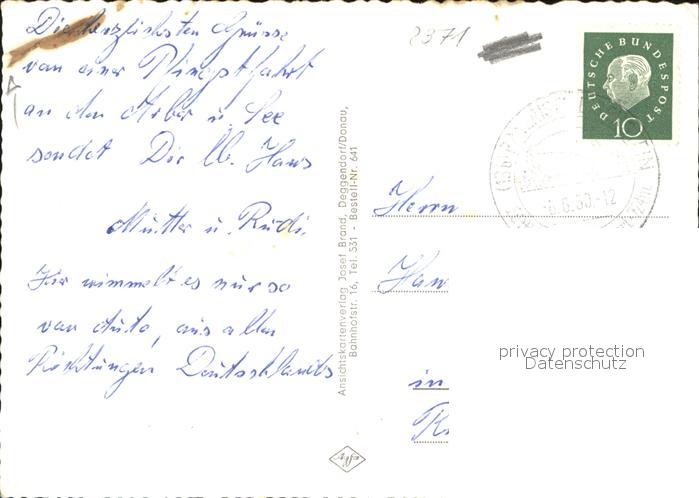 Die herzlichsten Grüsse
von einer Pfingstfahrt
an den Arber u. See
sendet Dir lb. Hans
Mutter u. Rudi.
Hier wimmelt es nur so
von Auto, aus allen
Richtungen Deutschlands
Ansichtskartenverlag Josef Brand, Deggendorf/Donau,
Bahnhofstr. 16, Tel. 531 - Bestell-Nr. 641
2371
DEUTSCHE BUNDESPOST
10
6.6.60.-12
Herrn
Han
in
privacy protection
Datenschutz